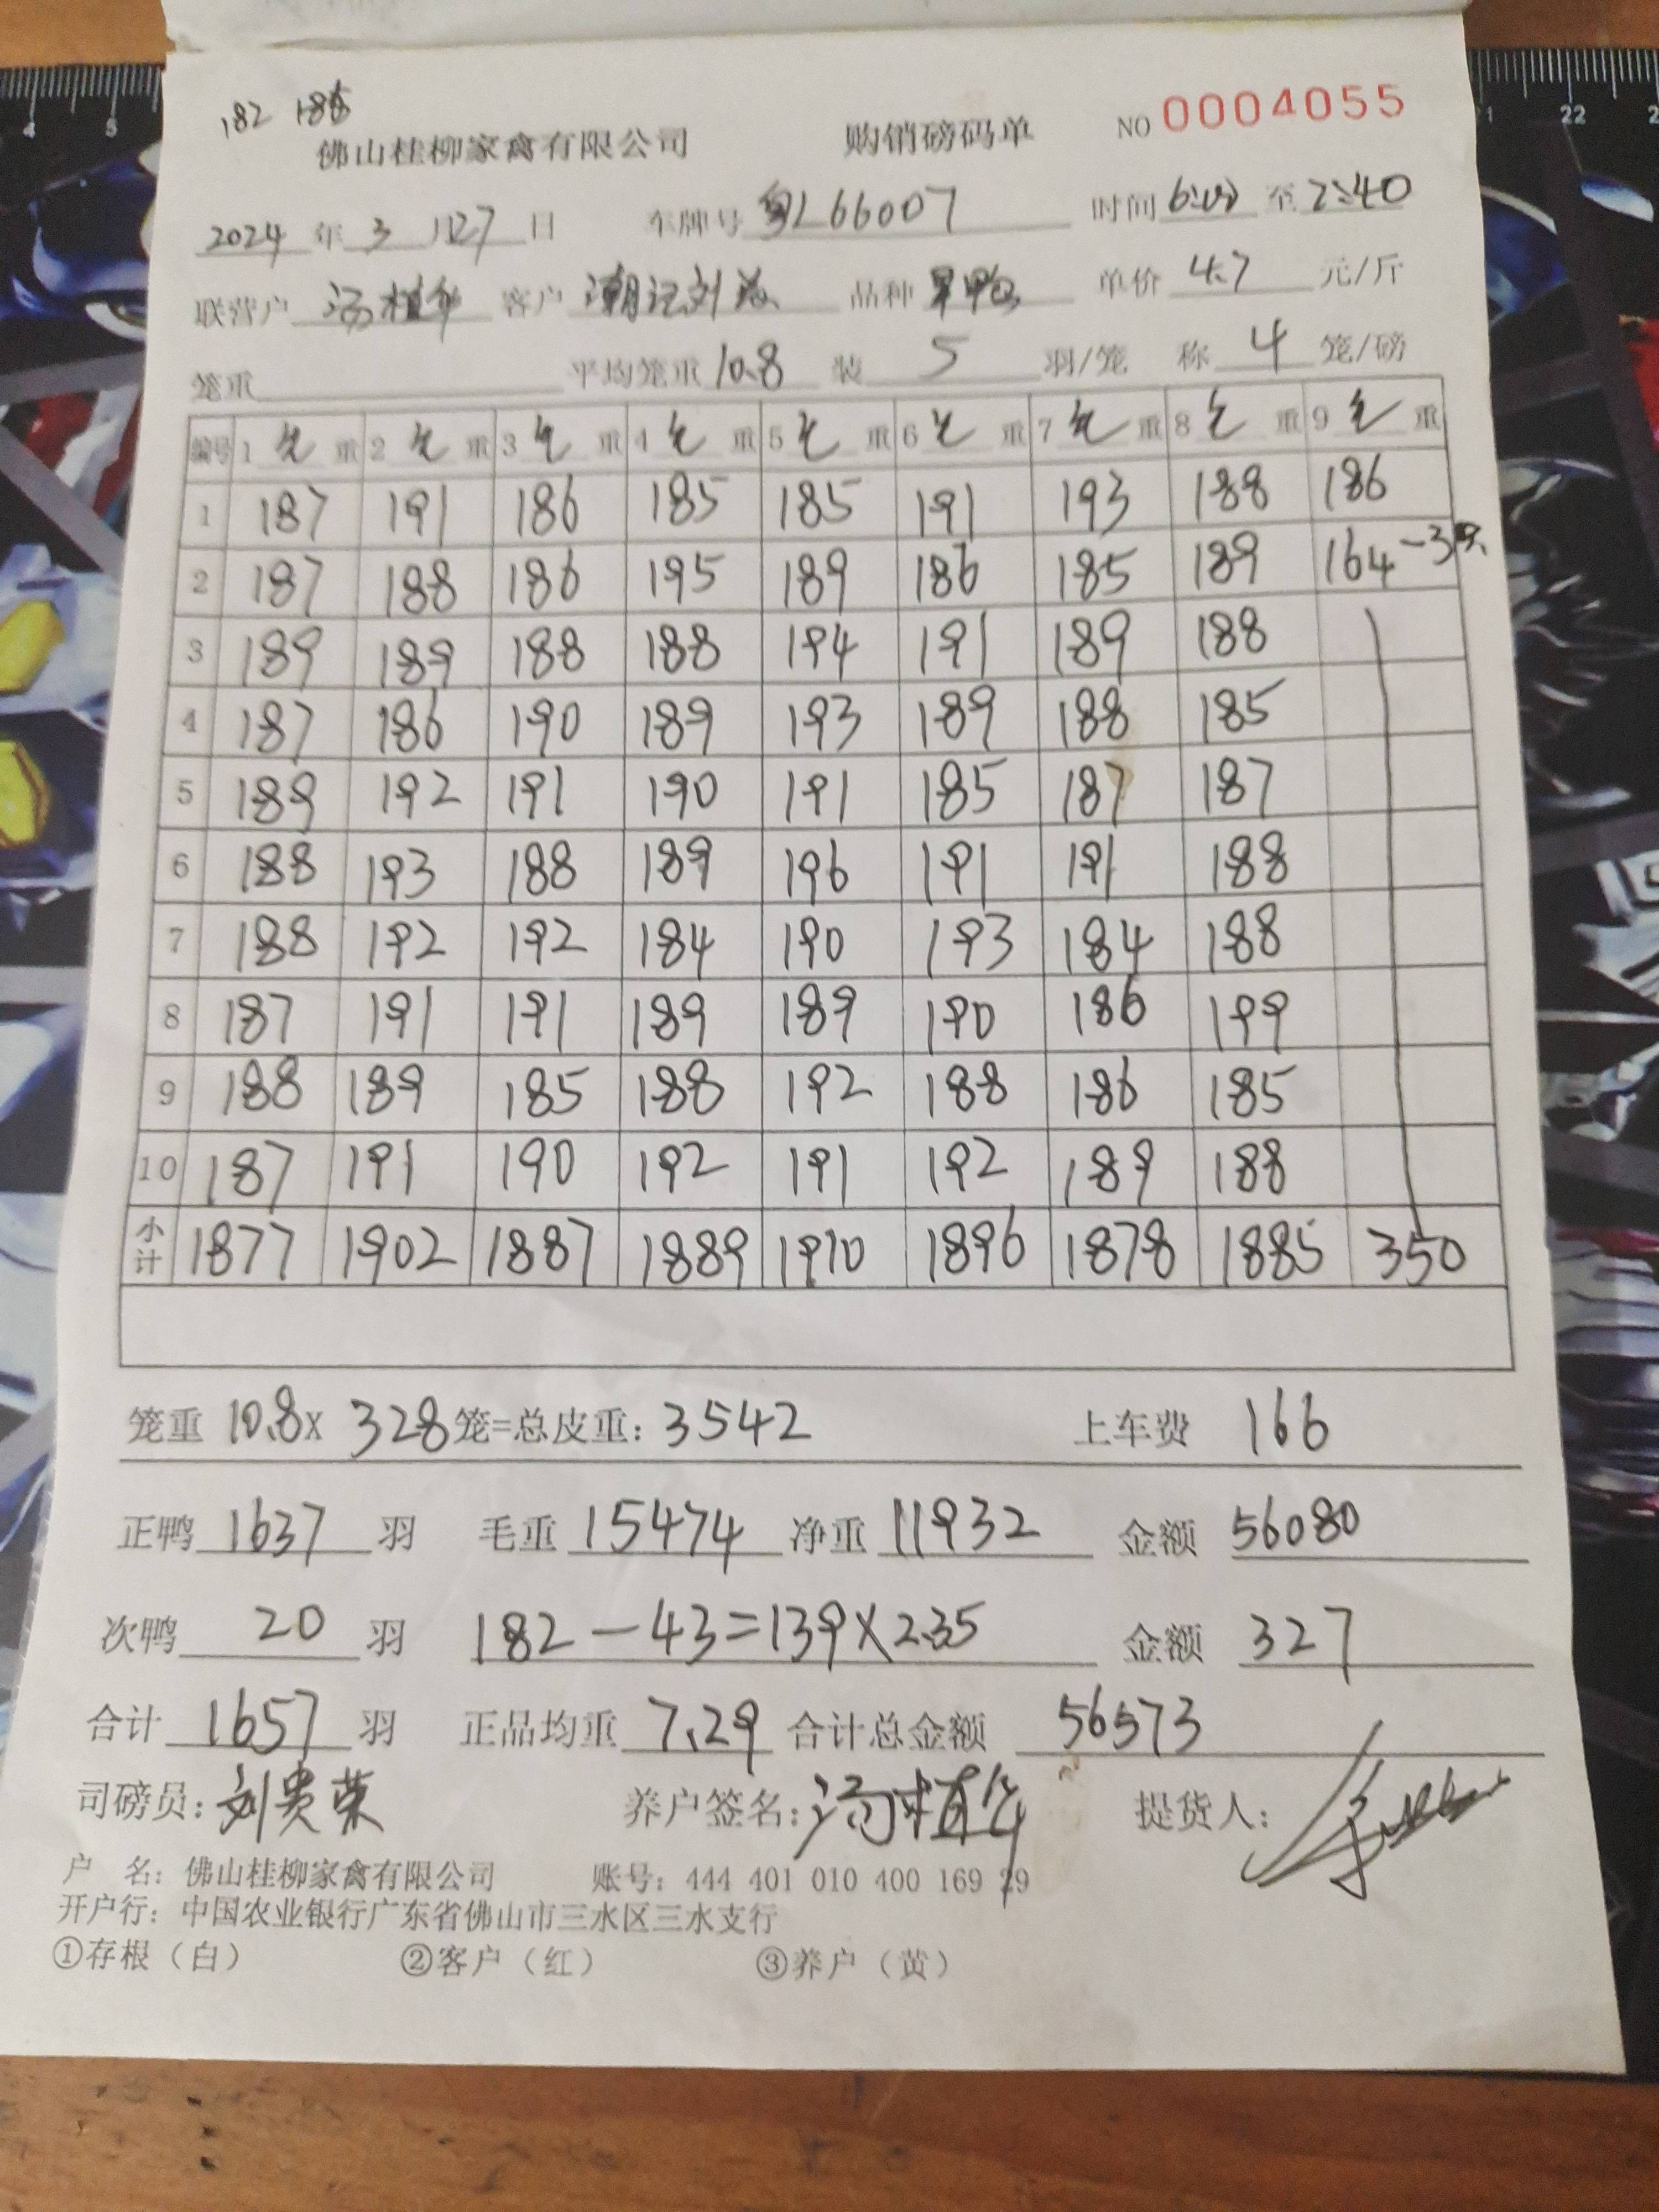 182 186
佛山桂柳家禽有限公司 购销磅码单 NO 0004055
2024 年 3 月 27 日 车牌号 粤L66007 时间 6:00 至 7:40
联营户 汤植华 客户 潮记刘 品种 旱鸭 单价 4.7 元/斤
笼重 平均笼重 10.8 装 5 羽/笼 称 4 笼/磅
编号 1 毛 重 2 毛 重 3 毛 重 4 毛 重 5 毛 重 6 毛 重 7 毛 重 8 毛 重 9 毛 重
1 187 191 186 185 185 191 193 188 186
2 187 188 186 195 189 186 185 189 164 -3只
3 189 189 188 188 194 191 189 188
4 187 186 190 189 193 189 188 185
5 189 192 191 190 191 185 187 187
6 188 193 188 189 196 191 191 188
7 188 192 192 184 190 193 184 188
8 187 191 191 189 189 190 186 199
9 188 189 185 188 192 188 186 185
10 187 191 190 192 191 192 189 188
小计 1877 1902 1887 1889 1910 1896 1878 1885 350
笼重 10.8 x 328 笼=总皮重: 3542 上车费 166
正鸭 1637 羽 毛重 15474 净重 11932 金额 56080
次鸭 20 羽 182-43=139×2.35 金额 327
合计 1657 羽 正品均重 7.29 合计总金额 56573
司磅员: 刘贵荣 养户签名: 汤植华 提货人:
户 名: 佛山桂柳家禽有限公司 账号: 444 401 010 400 169 29
开户行: 中国农业银行广东省佛山市三水区三水支行
①存根（白） ②客户（红） ③养户（黄）